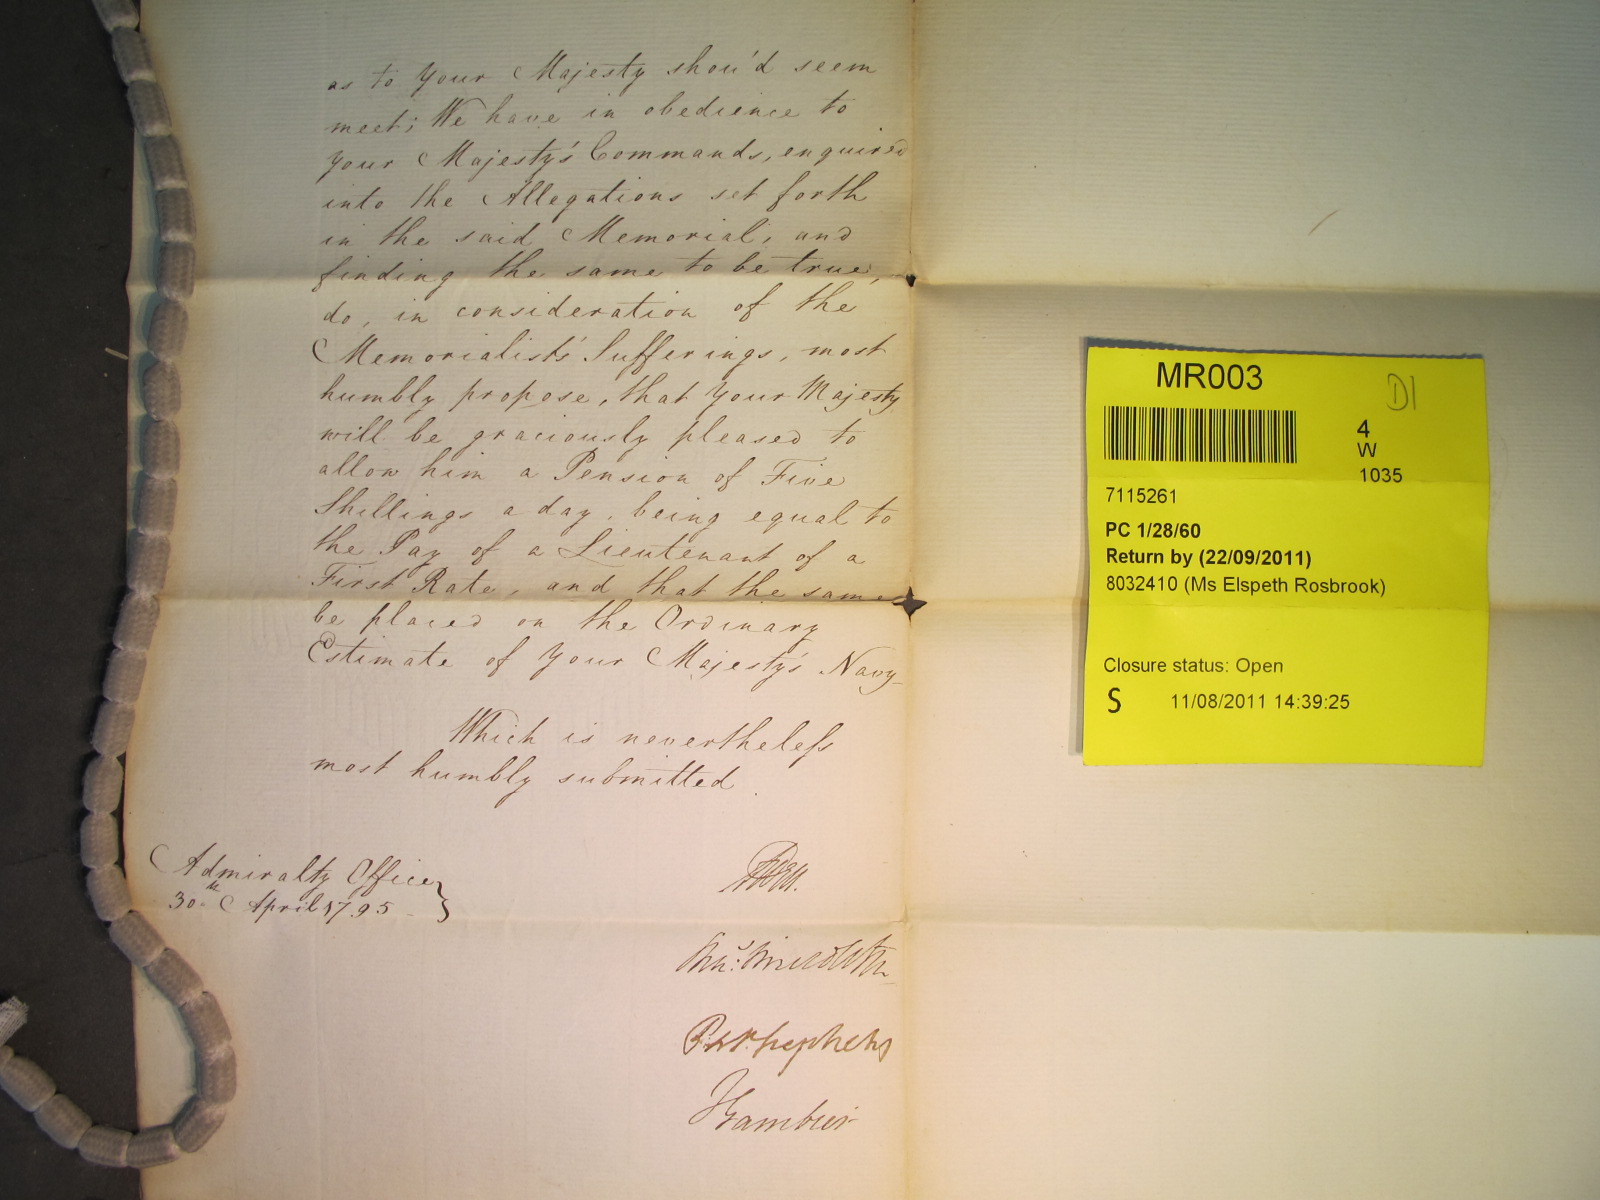 as to Your Majesty shou'd seem
meet; We have in obedience to
Your Majesty's Commands, enquired
into the Allegations set forth
in the said Memorial, and
finding the same to be true,
do, in consideration of the
Memorialists' Sufferings, most
humbly propose, that Your Majesty
will be graciously pleased to
allow him a Pension of Five
Shillings a day, being equal to
the Pay of a Lieutenant of a
First Rate, and that the same
be placed on the Ordinary
Estimate of Your Majesty's Navy
Which is nevertheleſs
most humbly submitted.
Admiralty Office
30th April 1795
Chs: Middleton
P: Stephens
JGambier
MR003
D1
4
W
1035
7115261
PC 1/28/60
Return by (22/09/2011)
8032410 (Ms Elspeth Rosbrook)
Closure status: Open
S 11/08/2011 14:39:25